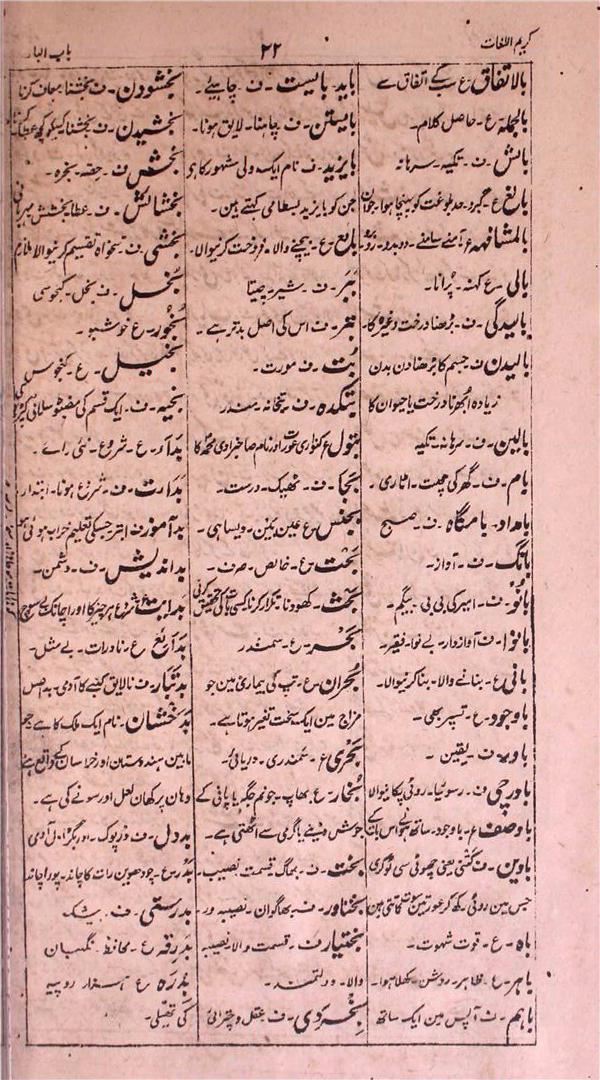 کریم اللغات
۲۲
باب البا
بالاتفاق - ع سب کے اتفاق سے
بالجملہ - ع - حاصل کلام -
بالش - ف - تکیہ - سرہانہ
بالغ - ع - حد بلوغت کو پہنچا ہوا - جوان
بالمشافہہ ع آمنے سامنے - دوبدو - روبرو
بالی - ع کہنہ - پُرانا -
بالیدگی - ف - بڑھنا درخت وغیرہ کا -
بالیدن ف - جسم کا بڑھنا دن بدن
زیادہ اُبھرنا درخت یا حیوان کا
بالین - ف - سرہانہ - تکیہ
بام - ف - گھر کی چھت - اٹاری -
بامداد - بامگاہ - ف - صبح
بانگ - ف - آواز -
بانُو - ف - امیر کی بی بی - بیگم -
بانوا - ف - آواز دار - بے نوا - فقیر -
بانی ع - بنانے والا - بنا کرنیوالا -
باوجود - ع - تسپر بھی -
باور - ف - یقین -
باورچی ف - رسوئیا - روٹی پکانیوالا
باوصف ع - باوجود - ساتھ ہونے اس بات کے
باوین - ف گشتی یعنی چھوٹی سی ٹوکری
جس مین روئی رکھ کر عورتین سوت کاتتی ہین
باہ - ع - قوت شہوت -
باہر - ع - ظاہر - روشن - کھلا ہوا -
باہم - ف - آپس مین ایک ساتھ
باید - بایست - ف - چاہیئے -
بایستن - ف - چاہنا - لایق ہونا -
بایزید - ف نام ایک ولی مشہور کا ہی
جن کو بایزید بسطامی کہتے ہین -
بایع - ع - بیچنے والا - فروخت کرنیوالا -
ببر - ف - شیر - چیتا
بتر - ف اس کی اصل بدتر ہے -
بُت - ف مورت -
بتکدہ - ف - بتخانہ - مندر
بتول ع کنواری عورت اور نام صاحبزادی محمد کا
بجا - ف - ٹھیک - درست -
بجنس - ع عین بین - ویسا ہی -
بحت - ع - خالص - صرف -
بحث - کھودنا - تکرار کرنا کسی بات کی تحقیق کرنی
بحر - ع - سمندر
بُحران - ع - تپ کی بیماری مین جو
مزاج مین ایک سخت تغیر ہوتا ہے -
بحری ع - سمندری - دریائی -
بُخار - ع - بھاپ - جو نم جگہ یا پانی کے
جوش دینے یا گرمی سے اُٹھتی ہے -
بخت - ف - بھاگ قسمت نصیب -
بختاور - ف - بھاگوان - نصیبہ ور -
بختیار ف - قسمت والا نصیبہ
والا - دولتمند -
بخردی - ف - عقل و چترائی
بخشودن - ف - بخشنا معاف کرنا
بخشیدن - ف - بخشنا کسیکو کچھ عطا کرنا
بخش ف - حصہ - بخرہ -
بخشائش - ف - عطا بخشش مہربانی
بخشی - ف - تنخواہ تقسیم کرنیوالا ملازم
بُخل - ف - بخل - کنجوسی
بخُور - ع - خوشبو -
بخیل - ع - کنجوس
بخیہ - ف - ایک قسم کی مضبوط سلائی
بدء - ع - شروع - نئی رائے -
بدایت - ف - شروع ہونا - ابتدا -
بدآموز ف ابتر جسکی تعلیم خراب ہوئی ہو
بداندیش - ف - دشمن -
بداہت - شروع ہر چیز کا اور اچانک
بدایع ع - نادرات - بے مثل -
بدتبار - ف نالایق کنبے کا آدمی - بد اصل
بدخشان - نام ایک ملک کا ہے جو
مابین ہندوستان اور خراسان کے واقع ہے
وہان پر کھان لعل اور سونے کی ہے -
بددل - ف - ڈرپوک
بدر - ع - چودھوین رات کا چاند - پورا چاند
بدرستی - ف - بیشک
بدرقہ - ع - محافظ - نگہبان
بدرہ - ع - ہزار روپیہ
کی تھیلی -